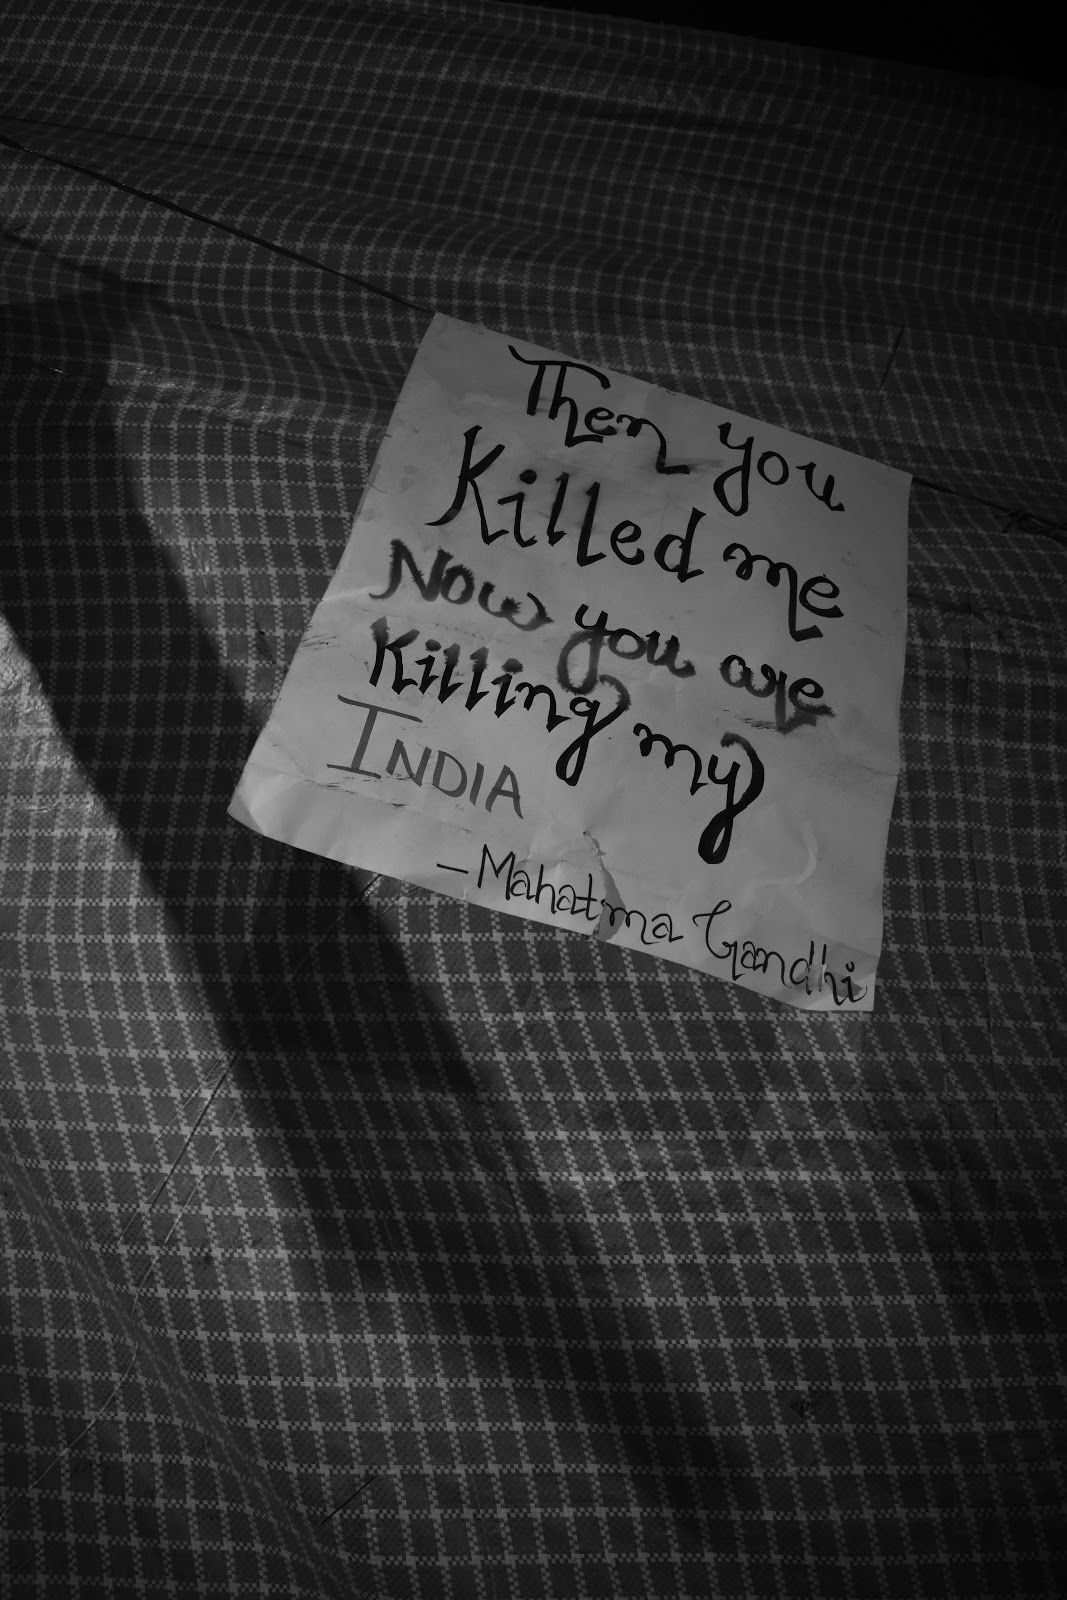 Then you
Killed me
Now you are
Killing my
INDIA
- Mahatma Gandhi